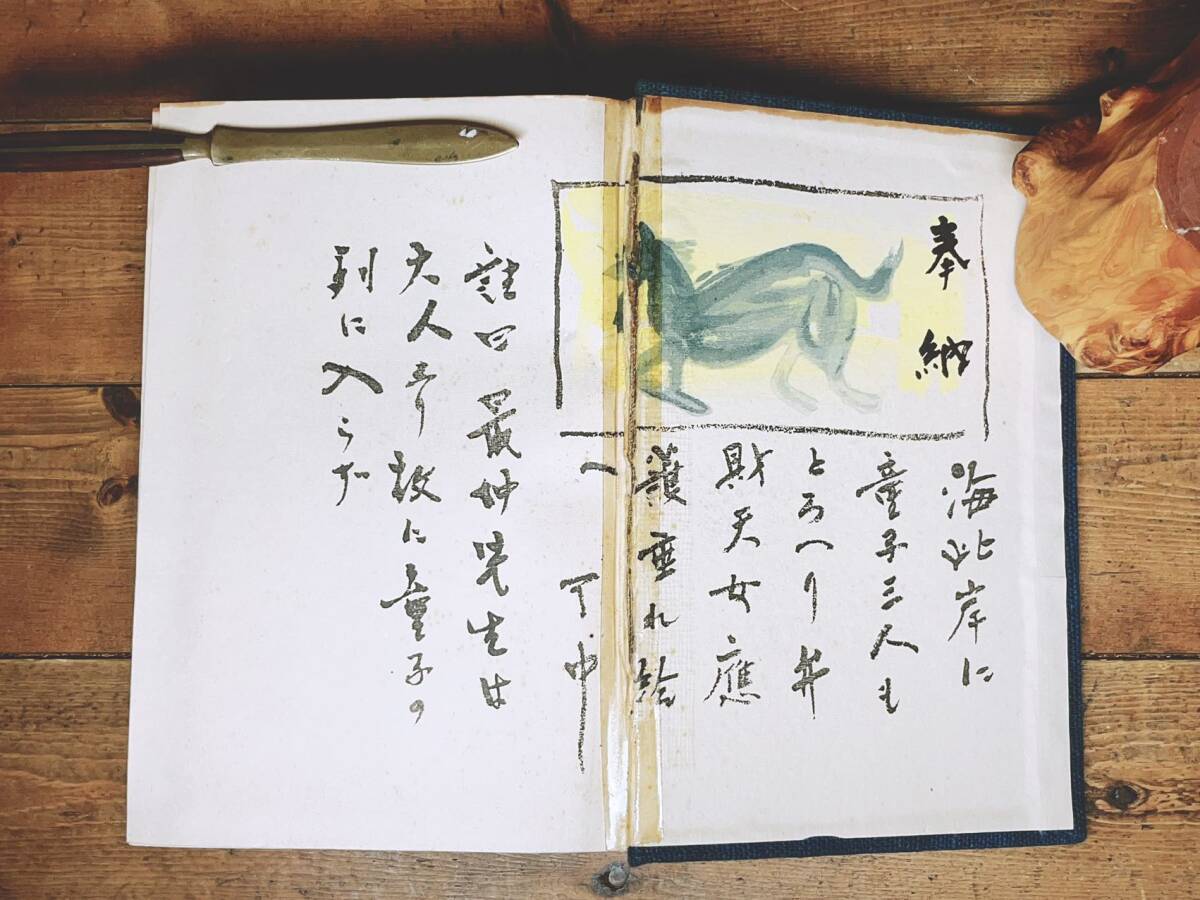 奉納
海岸に
童子三人も
とろへり 弁
財天女應
護垂れ給
へ 丁中
註曰 最仲先生は
大人なり 故に童子の
列に入らず